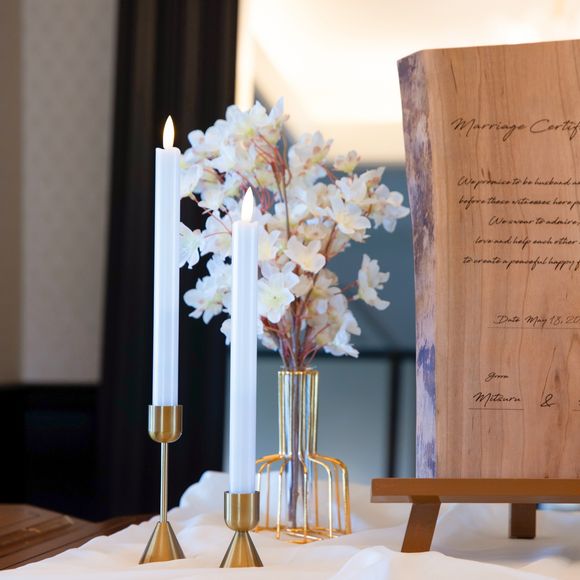 Marriage Certif
We promise to be husband a
before these witnesses here p
We swear to admire,
love and help each other
to create a peaceful happy f
Date May 18, 20
Groom
Mitsuru
&